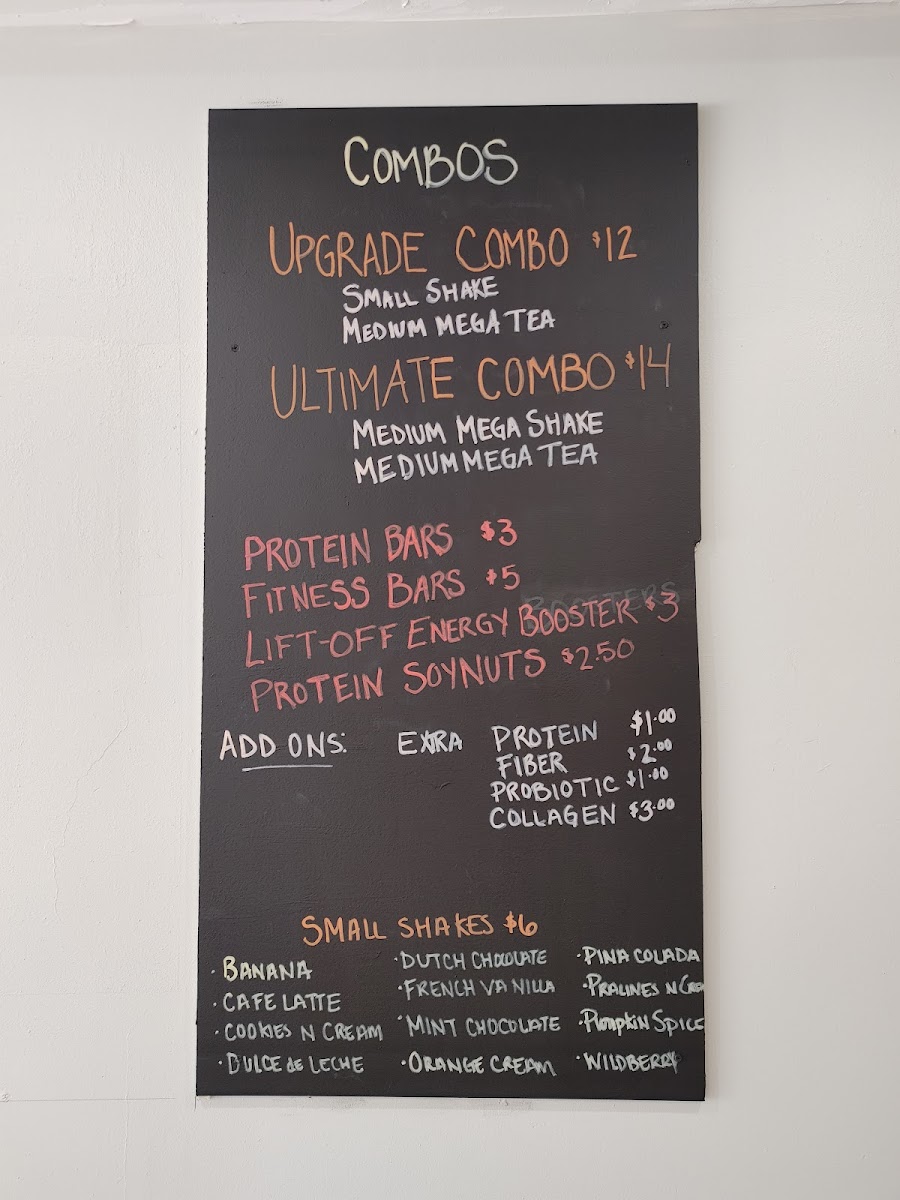 COMBOS
UPGRADE COMBO $12
SMALL SHAKE
MEDIUM MEGA TEA
ULTIMATE COMBO $14
MEDIUM MEGA SHAKE
MEDIUM MEGA TEA
PROTEIN BARS $3
FITNESS BARS $5
BOOSTERS
LIFT-OFF ENERGY BOOSTER $3
PROTEIN SOYNUTS $2.50
ADD ONS: EXTRA PROTEIN $1.00
FIBER $2.00
PROBIOTIC $1.00
COLLAGEN $3.00
SMALL SHAKES $6
· BANANA · DUTCH CHOCOLATE · PINA COLADA
· CAFE LATTE · FRENCH VANILLA · PRALINES N CREAM
· COOKIES N CREAM · MINT CHOCOLATE · PUMPKIN SPICE
· DULCE de LECHE · ORANGE CREAM · WILDBERRY